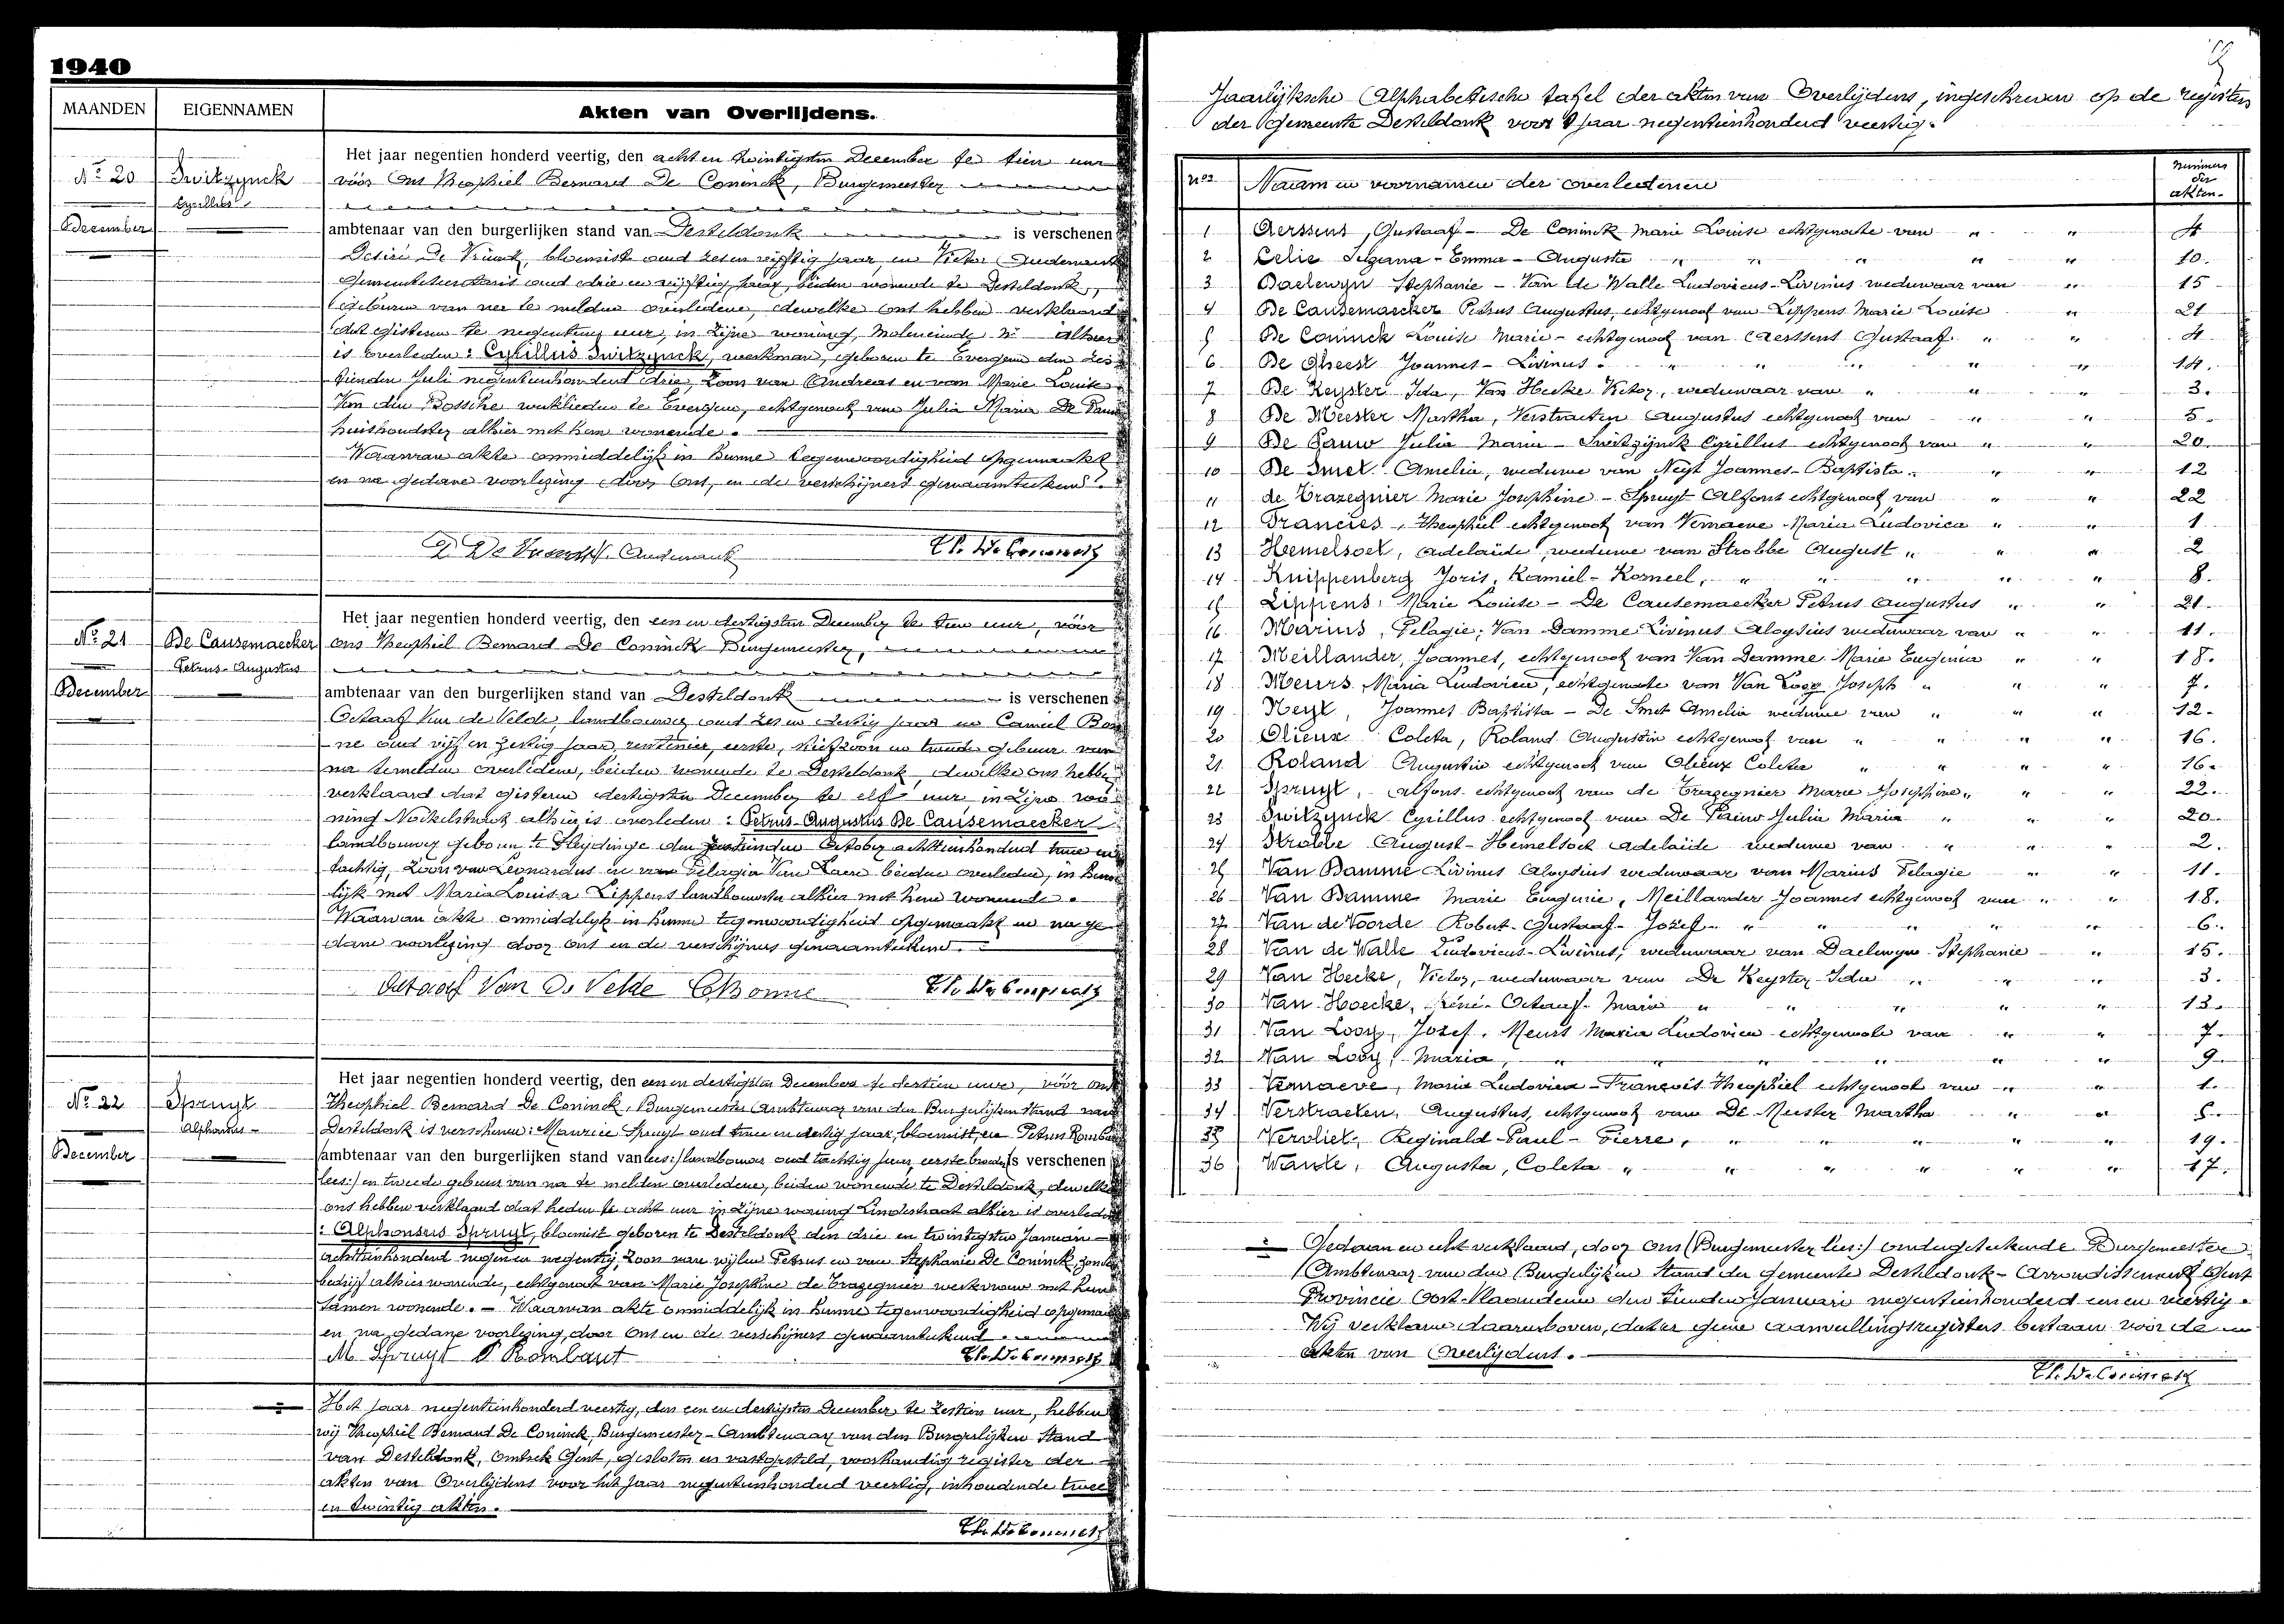 1940
MAANDEN EIGENNAMEN Akten van Overlijdens.
Nº 20
December
Switzynck
Cyrillus
Het jaar negentien honderd veertig, den acht en twintigsten December te tien uur
vóór Ons Theophiel Bernard De Coninck, Burgemeester
ambtenaar van den burgerlijken stand van Desteldonk is verschenen
Desiré De Vriendt, bloemist oud zes en vijftig jaar, en Victor Oudenaert
Gemeentesecretaris oud drie en vijftig jaar, beiden wonende te Desteldonk,
geburen van na te melden overledene, dewelke ons hebben verklaard
dat gisteren te negentien uur, in zijne woning, Moleneinde Nr alhier
is overleden: Cyrillus Switzynck, werkman, geboren te Evergem den zes
tienden Juli negentienhonderd drie, Zoon van Andreas en van Marie Louise
Van den Bossche werklieden te Evergem, echtgenoot van Julia Maria De Pauw
huishoudster alhier met hem wonende.
Waarvan akte onmiddelijk in hunne tegenwoordigheid opgemaakt
en na gedane voorlezing door Ons, en de verschijners genaamteekend.
Th. De Coninck
Nº 21
December
De Causemaecker
Petrus-Augustus
Het jaar negentien honderd veertig, den een en dertigsten December te tien uur, vóór
ons Theophiel Bernard De Coninck Burgemeester,
ambtenaar van den burgerlijken stand van Desteldonk is verschenen
Octaaf Van de Velde, landbouwer oud zes en dertig jaar en Camiel Bon
ne oud vijf en zestig jaar, rentenier, eerste, stiefzoon en tweede gebuur van
na temelden overledene, beiden wonende te Desteldonk, dewelke ons hebben
verklaard dat gisteren dertigsten December te elf uur in zijne wo
ning alhier is overleden: Petrus-Augustus De Causemaecker
landbouwer geboren te Sleydinge den October achttienhonderd twee en
tachtig, Zoon van Leonardus en van Pelagia Van Laere beiden overleden, in huwe
lijk met Maria Louisa Lippens landbouwster alhier met hem wonende.
Waarvan akte onmiddelijk in hunne tegenwoordigheid opgemaakt en na ge
dane voorlezing door ons en de verschijners genaamteekend.
Octaaf Van De Velde C Bonne Th. De Coninck
Nº 22
December
Spruyt
Alphonsus
Het jaar negentien honderd veertig, den een en dertigsten December te dertien uur, vóór ons
Theophiel Bernard De Coninck, Burgemeester Ambtenaar van den Burgerlijken Stand van
Desteldonk is verschenen: Maurice Spruyt oud twee en dertig jaar, bloemist, en Petrus Rombaut
ambtenaar van den burgerlijken stand van lees:/landbouwer oud tachtig jaar, eerste broeder is verschenen
lees:/ en tweede gebuur van na te melden overledene, beiden wonende te Desteldonk, dewelke
ons hebben verklaard dat heden te acht uur in zijne woning Lindestraat alhier is overleden
: Alphonsus Spruyt, bloemist geboren te Desteldonk den drie en twintigsten Januari
achttienhonderd negen en negentig, Zoon van wijlen Petrus en van Stephanie De Coninck, zonder
bedrijf alhier wonende, echtgenoot van Marie Josephine de Trazegnier werkvrouw met hem
samen wonende. — Waarvan akte onmiddelijk in hunne tegenwoordigheid opgemaakt
en na gedane voorlezing, door Ons en de verschijners genaamteekend.
M Spruyt P Rombaut Th. De Coninck
Het jaar negentienhonderd veertig, den een en dertigsten December te zestien uur, hebben
wij Theophiel Bernard De Coninck, Burgemeester-Ambtenaar van den Burgerlijken Stand
van Desteldonk, Omtrek Gent, gesloten en vastgesteld, voorhandig register der
akten van Overlijdens voor het jaar negentienhonderd veertig, inhoudende twee
en twintig akten.
Th. De Coninck
19
Jaarlijksche Alphabetische tafel der akten van Overlijdens, ingeschreven op de registers
der Gemeente Desteldonk voor 't jaar negentienhonderd veertig.
nos Naam en voornamen der overledenen Nummers der akten.
1 Aerssens, Gustaaf - De Coninck Marie Louise echtgenoote van " " 4
2 Celie - Emma - Augusta " " " " " 10.
3 Daelewyn Stephanie - Van de Walle Ludovicus-Livinus weduwaar van " 15
4 De Causemaecker Petrus Augustus, echtgenoot van Lippens Marie Louise " 21
5 De Coninck Louise Marie - echtgenoot van Aerssens Gustaaf " " 4
6 De Gheest Joannes - Livinus. " " " " 14.
7 De Keyster Ida, Van Hecke Victor, weduwaar van " " " 3.
8 De Meester Martha, Verstraeten Augustus echtgenoot van " " 5.
9 De Pauw Julia Maria - Switzynck Cyrillus echtgenoot van " " 20.
10 De Smet Amelia, weduwe van Neyt Joannes-Baptista. " " 12
11 de Trazegnier Marie Josephine - Spruyt Alfons echtgenoot van " " 22
12 Francies, Theophiel echtgenoot van Vernaeve Maria Ludovica " " 1
13 Hemelsoet, Adelaïde, weduwe van Strobbe August " " " 2
14 Knippenberg Joris, Kamiel-Korneel, " " " " " 8.
15 Lippens, Marie Louise - De Causemaecker Petrus Augustus " " 21.
16 Marius, Pelagie, Van Damme Livinus Aloysius weduwaar van " " 11.
17 Meillander, Joannes, echtgenoot van Van Damme Marie Eugenia " " 18.
18 Meurs, Maria Ludovica, echtgenoote van Van Looy Joseph " " " 7.
19 Neyt, Joannes Baptista - De Smet Amelia weduwe van " " " 12.
20 Olieux Coleta, Roland Augustin echtgenoot van " " " " 16.
21 Roland Augustin echtgenoot van Olieux Coleta " " " " 16.
22 Spruyt, Alfons echtgenoot van de Trazegnier Marie Josephine " " " 22.
23 Switzynck Cyrillus echtgenoot van De Pauw Julia Maria " " " 20.
24 Strobbe August - Hemelsoet Adelaïde weduwe van " " " 2.
25 Van Damme Livinus Aloysius weduwaar van Marius Pelagie " " 11.
26 Van Damme Marie Eugenie, Meillander Joannes echtgenoot van " " 18.
27 Van de Voorde Robert-Gustaaf-Jozef " " " " " 6.
28 Van de Walle Ludovicus-Livinus, weduwaar van Daelewyn Stephanie " 15.
29 Van Hecke, Victor, weduwaar van De Keyster Ida " " " 3.
30 Van Hoecke, René-Octaaf-Maria " " " " " 13.
31 Van Looy, Jozef. Meurs Maria Ludovica echtgenoote van " " 7.
32 Van Looy, Maria, " " " " " " 9.
33 Vernaeve, Maria Ludovica - François Theophiel echtgenoot van " " 1.
34 Verstraeten, Augustus, echtgenoot van De Meester Martha " " 5.
35 Vervliet, Reginald-Paul-Pierre, " " " " " 19.
36 Wante, Augusta, Coleta " " " " " " 17.
Gedaan en echt verklaard, door Ons (Burgemeester lees:) ondergeteekende Burgemeester
Ambtenaar van den Burgerlijken Stand der Gemeente Desteldonk - Arrondissement Gent
Provincie Oost-Vlaanderen den tienden Januari negentienhonderd een en veertig.
Wij verklaren daarenboven, dat er geene aanvullingsregisters bestaan voor de
akten van Overlijdens.
Th. De Coninck